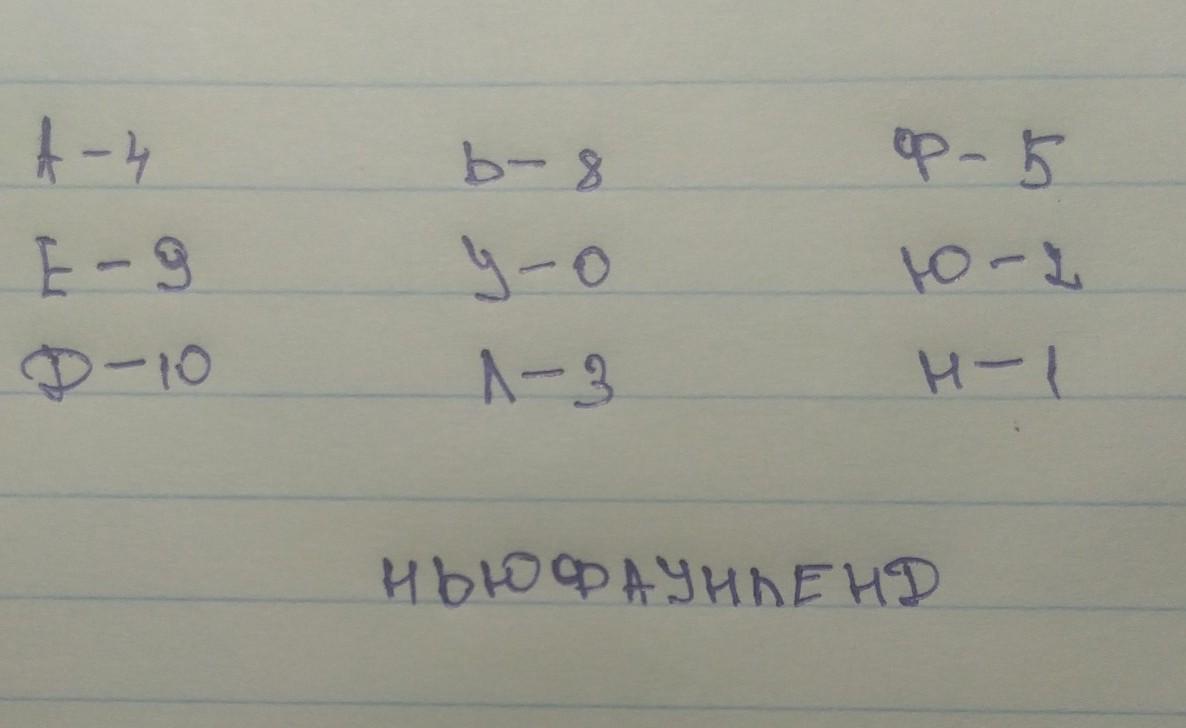 А - 4 Ь - 8 Ф - 5
Е - 9 У - 0 Ю - 2
Д - 10 Л - 3 Н - 1
НЬЮФАУНЛЕНД